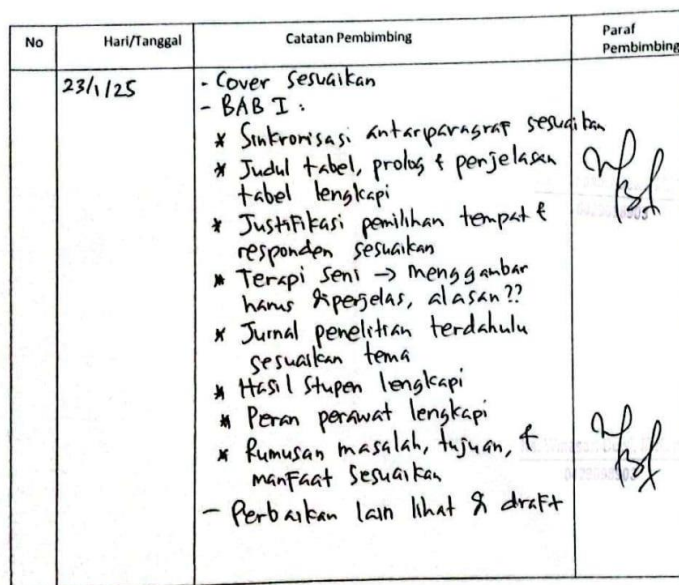 No Hari/Tanggal Catatan Pembimbing Paraf Pembimbing
23/1/25 - Cover sesuaikan
- BAB I :
* Sinkronisasi antarparagraf sesuaikan
* Judul tabel, prolog & penjelasan
tabel lengkapi
* Justifikasi pemilihan tempat &
responden sesuaikan
* Terapi seni → menggambar
harus diperjelas, alasan??
* Jurnal penelitian terdahulu
sesuaikan tema
* Hasil stupen lengkapi
* Peran perawat lengkapi
* Rumusan masalah, tujuan, &
manfaat sesuaikan
- Perbaikan lain lihat di draft